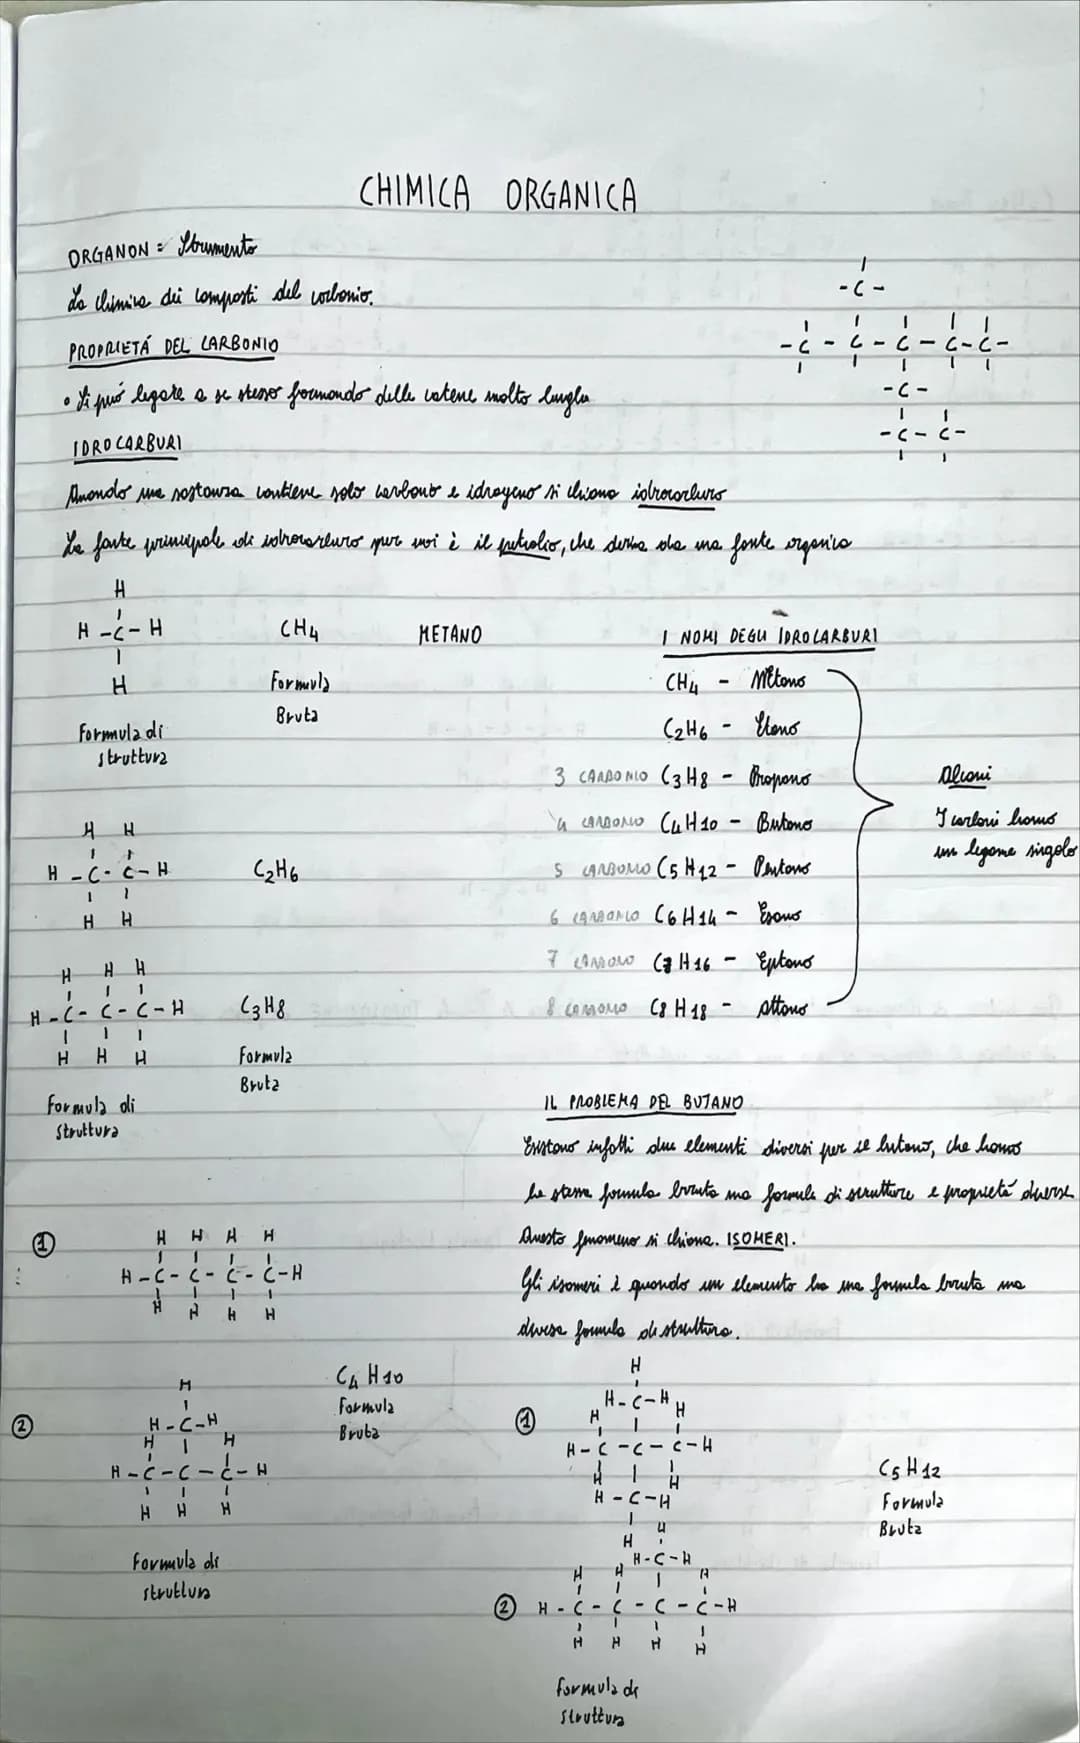 CHIMICA ORGANICA
ORGANON = Strumento
La chimica dei composti del carbonio.
PROPRIETÁ DEL CARBONIO
• Si puó legare a se stesso formando delle catene molto lunghe
IDROCARBURI
Quando una sostanza contiene solo carbonio e idrogeno si chiama idrocarburo
La fonte principale di idrocarburo per noi è il petrolio, che deriva da una fonte organica
- C -
- C - C - C - C - C -
- C -
- C - C -
H
H - C - H
H
Formula di
struttura
CH4
Formula
Bruta
METANO
H H
H - C - C - H
H H
C2H6
H H H
H - C - C - C - H
H H H
C3H8
Formula
Bruta
Formula di
Struttura
I NOMI DEGLI IDROCARBURI
CH4 - Metano
C2H6 - Etano
3 CARBONIO C3H8 - Propano
4 CARBONIO C4H10 - Butano
5 CARBONIO C5H12 - Pentano
6 CARBONIO C6H14 - Esano
7 CARBONIO C7H16 - Eptano
8 CARBONIO C8H18 - Ottano
Alcani
I carboni hanno
un legame singolo
IL PROBLEMA DEL BUTANO
Esistono infatti due elementi diversi per il butano, che hanno
la stessa formula bruta ma formula di strutture e proprietá diverse
Questo fenomeno si chiama. ISOMERI.
Gli isomeri è quando un elemento ha una formula bruta ma
diversa formula di struttura.
1
H H H H
H - C - C - C - C - H
H H H H
2
H
H - C - H
H H
H - C - C - C - H
H H H
C4H10
Formula
Bruta
Formula di
struttura
1
H
H - C - H
H H
H - C - C - C - H
H H
H - C - H
H
2
H
H - C - H
H H H
H - C - C - C - C - H
H H H H
C5H12
Formula
Bruta
Formula di
Struttura